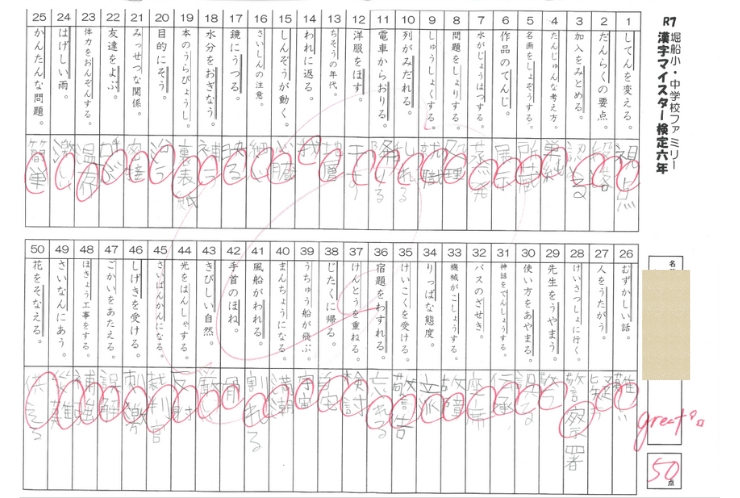 R7 堀船小・中学校ファミリー
漢字マイスター検定六年
1 してんを変える。 視点
2 だんらくの要点。 段落
3 加入をみとめる。 認める
4 たんじゅんな考え方。 単純
5 名画をしょぞうする。 所蔵
6 作品のてんじ。 展示
7 水がじょうはつする。 蒸発
8 問題をしょりする。 処理
9 しゅうしょくする。 就職
10 列がみだれる。 乱れる
11 電車からおりる。 降りる
12 洋服をほす。 干す
13 ちそうの年代。 地層
14 われに返る。 我
15 しんぞうが動く。 心臓
16 さいしんの注意。 細心
17 鏡にうつる。 映る
18 水分をおぎなう。 補う
19 本のうらびょうし。 裏表紙
20 目的にそう。 沿う
21 みっせつな関係。 密接
22 友達をよぶ。 呼ぶ
23 体力をおんぞんする。 温存
24 はげしい雨。 激しい
25 かんたんな問題。 簡単
名
26 むずかしい話。 難しい
27 人をうたがう。 疑う
28 けいさつしょに行く。 警察署
29 先生をうやまう。 敬う
30 使い方をあやまる。 誤る
31 神話をでんしょうする。 伝承
32 バスのざせき。 座席
33 機械がこしょうする。 故障
34 りっぱな態度。 立派
35 けいこくを受ける。 警告
36 宿題をわすれる。 忘れる
37 けんとうを重ねる。 検討
38 じたくに帰る。 自宅
39 うちゅう船が飛ぶ。 宇宙
40 まんちょうになる。 満潮
41 風船がわれる。 割れる
42 手首のほね。 骨
43 きびしい自然。 厳
44 光をはんしゃする。 反射
45 さいばんかんになる。 裁判官
46 しげきを受ける。 刺激
47 ごかいをあたえる。 誤解
48 ほきょう工事をする。 補強
49 さいなんにあう。 災難
50 花をそなえる。 供える
great!
50点